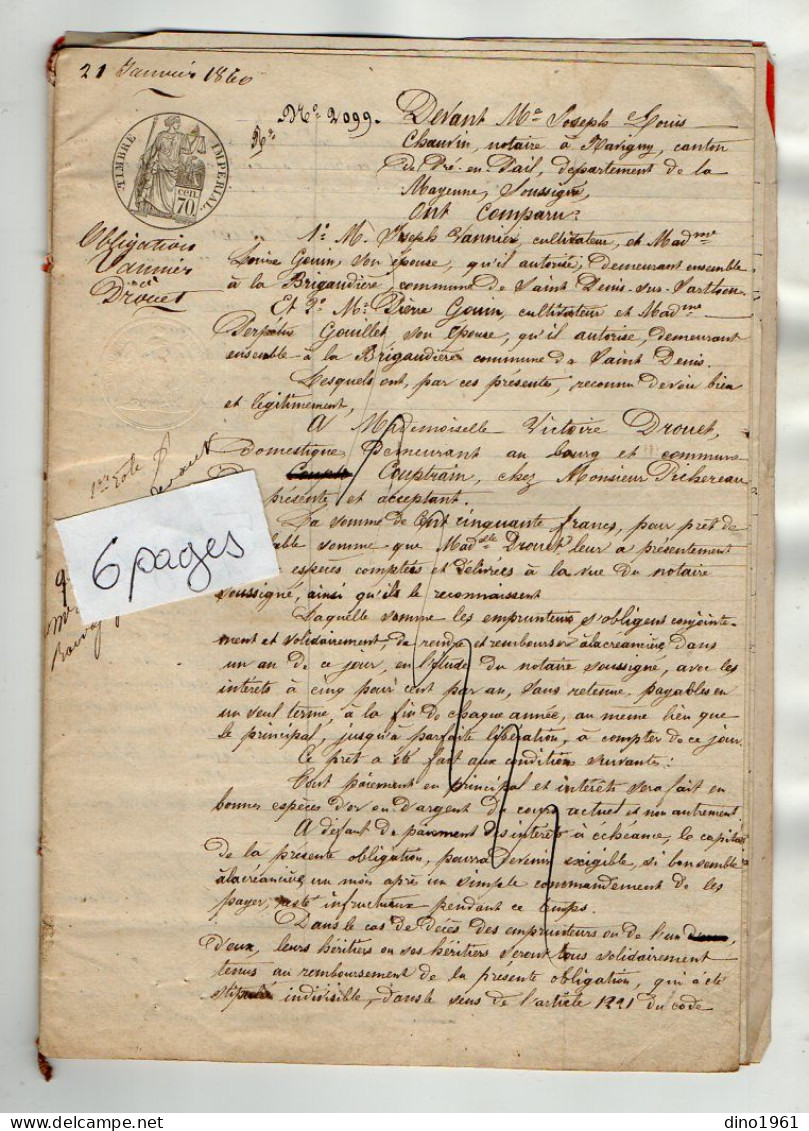 21 Janvier 1860
Nº 2099.
Devant Me Joseph Louis
Chauvin, notaire à Ravigny, canton
de Pré-en-Pail, département de la
Mayenne, Soussigné,
Ont Comparu:
TIMBRE IMPERIAL.
70 cen
Obligation
Vannier
Drouet
1º M. Joseph Vannier, cultivateur, et Madme
Louise Gouin, son épouse, qu'il autorise, demeurant ensemble
à la Brigaudière, commune de Saint Denis-sur-Sarthon.
Et 2º M. Pierre Gouin, cultivateur et Madme
Perpétue Gouillet, son épouse, qu'il autorise, demeurant
ensemble à la Brigaudière commune de Saint Denis.
Lesquels ont, par ces présentes, reconnu devoir bien
et légitimement,
A Mademoiselle Victoire Drouet,
domestique, demeurant au bourg et commune
Couptrain, chez Monsieur Pichereau
présente et acceptant.
La somme de Cent cinquante francs, pour prêt de
somme que Madelle Drouet leur a présentement
espèces comptées et délivrées à la vue du notaire
soussigné, ainsi qu'ils le reconnaissent
6 pages
Laquelle somme les emprunteurs s'obligent conjointe-
ment et solidairement, de rendre et rembourser à la créancière dans
un an de ce jour, en l'étude du notaire soussigné, avec les
intérêts à cinq pour cent par an, sans retenue, payables en
un seul terme, à la fin de chaque année, au même lieu que
le principal, jusqu'à parfaite libération, à compter de ce jour.
Ce prêt a été fait aux conditions suivantes:
Tout paiement en principal et intérêts sera fait en
bonnes espèces d'or ou d'argent du cours actuel et non autrement
A défaut de paiement des intérêts à échéance, le capital
de la présente obligation, pourra devenir exigible, si bon semble
à la créancière, un mois après un simple commandement de les
payer, resté infructueux pendant ce temps.
Dans le cas de décès des emprunteurs ou de l'un
d'eux, leurs héritiers ou ses héritiers seront tous solidairement
tenus au remboursement de la présente obligation, qui a été
stipulée indivisible, dans le sens de l'article 1221 du code
dino1961